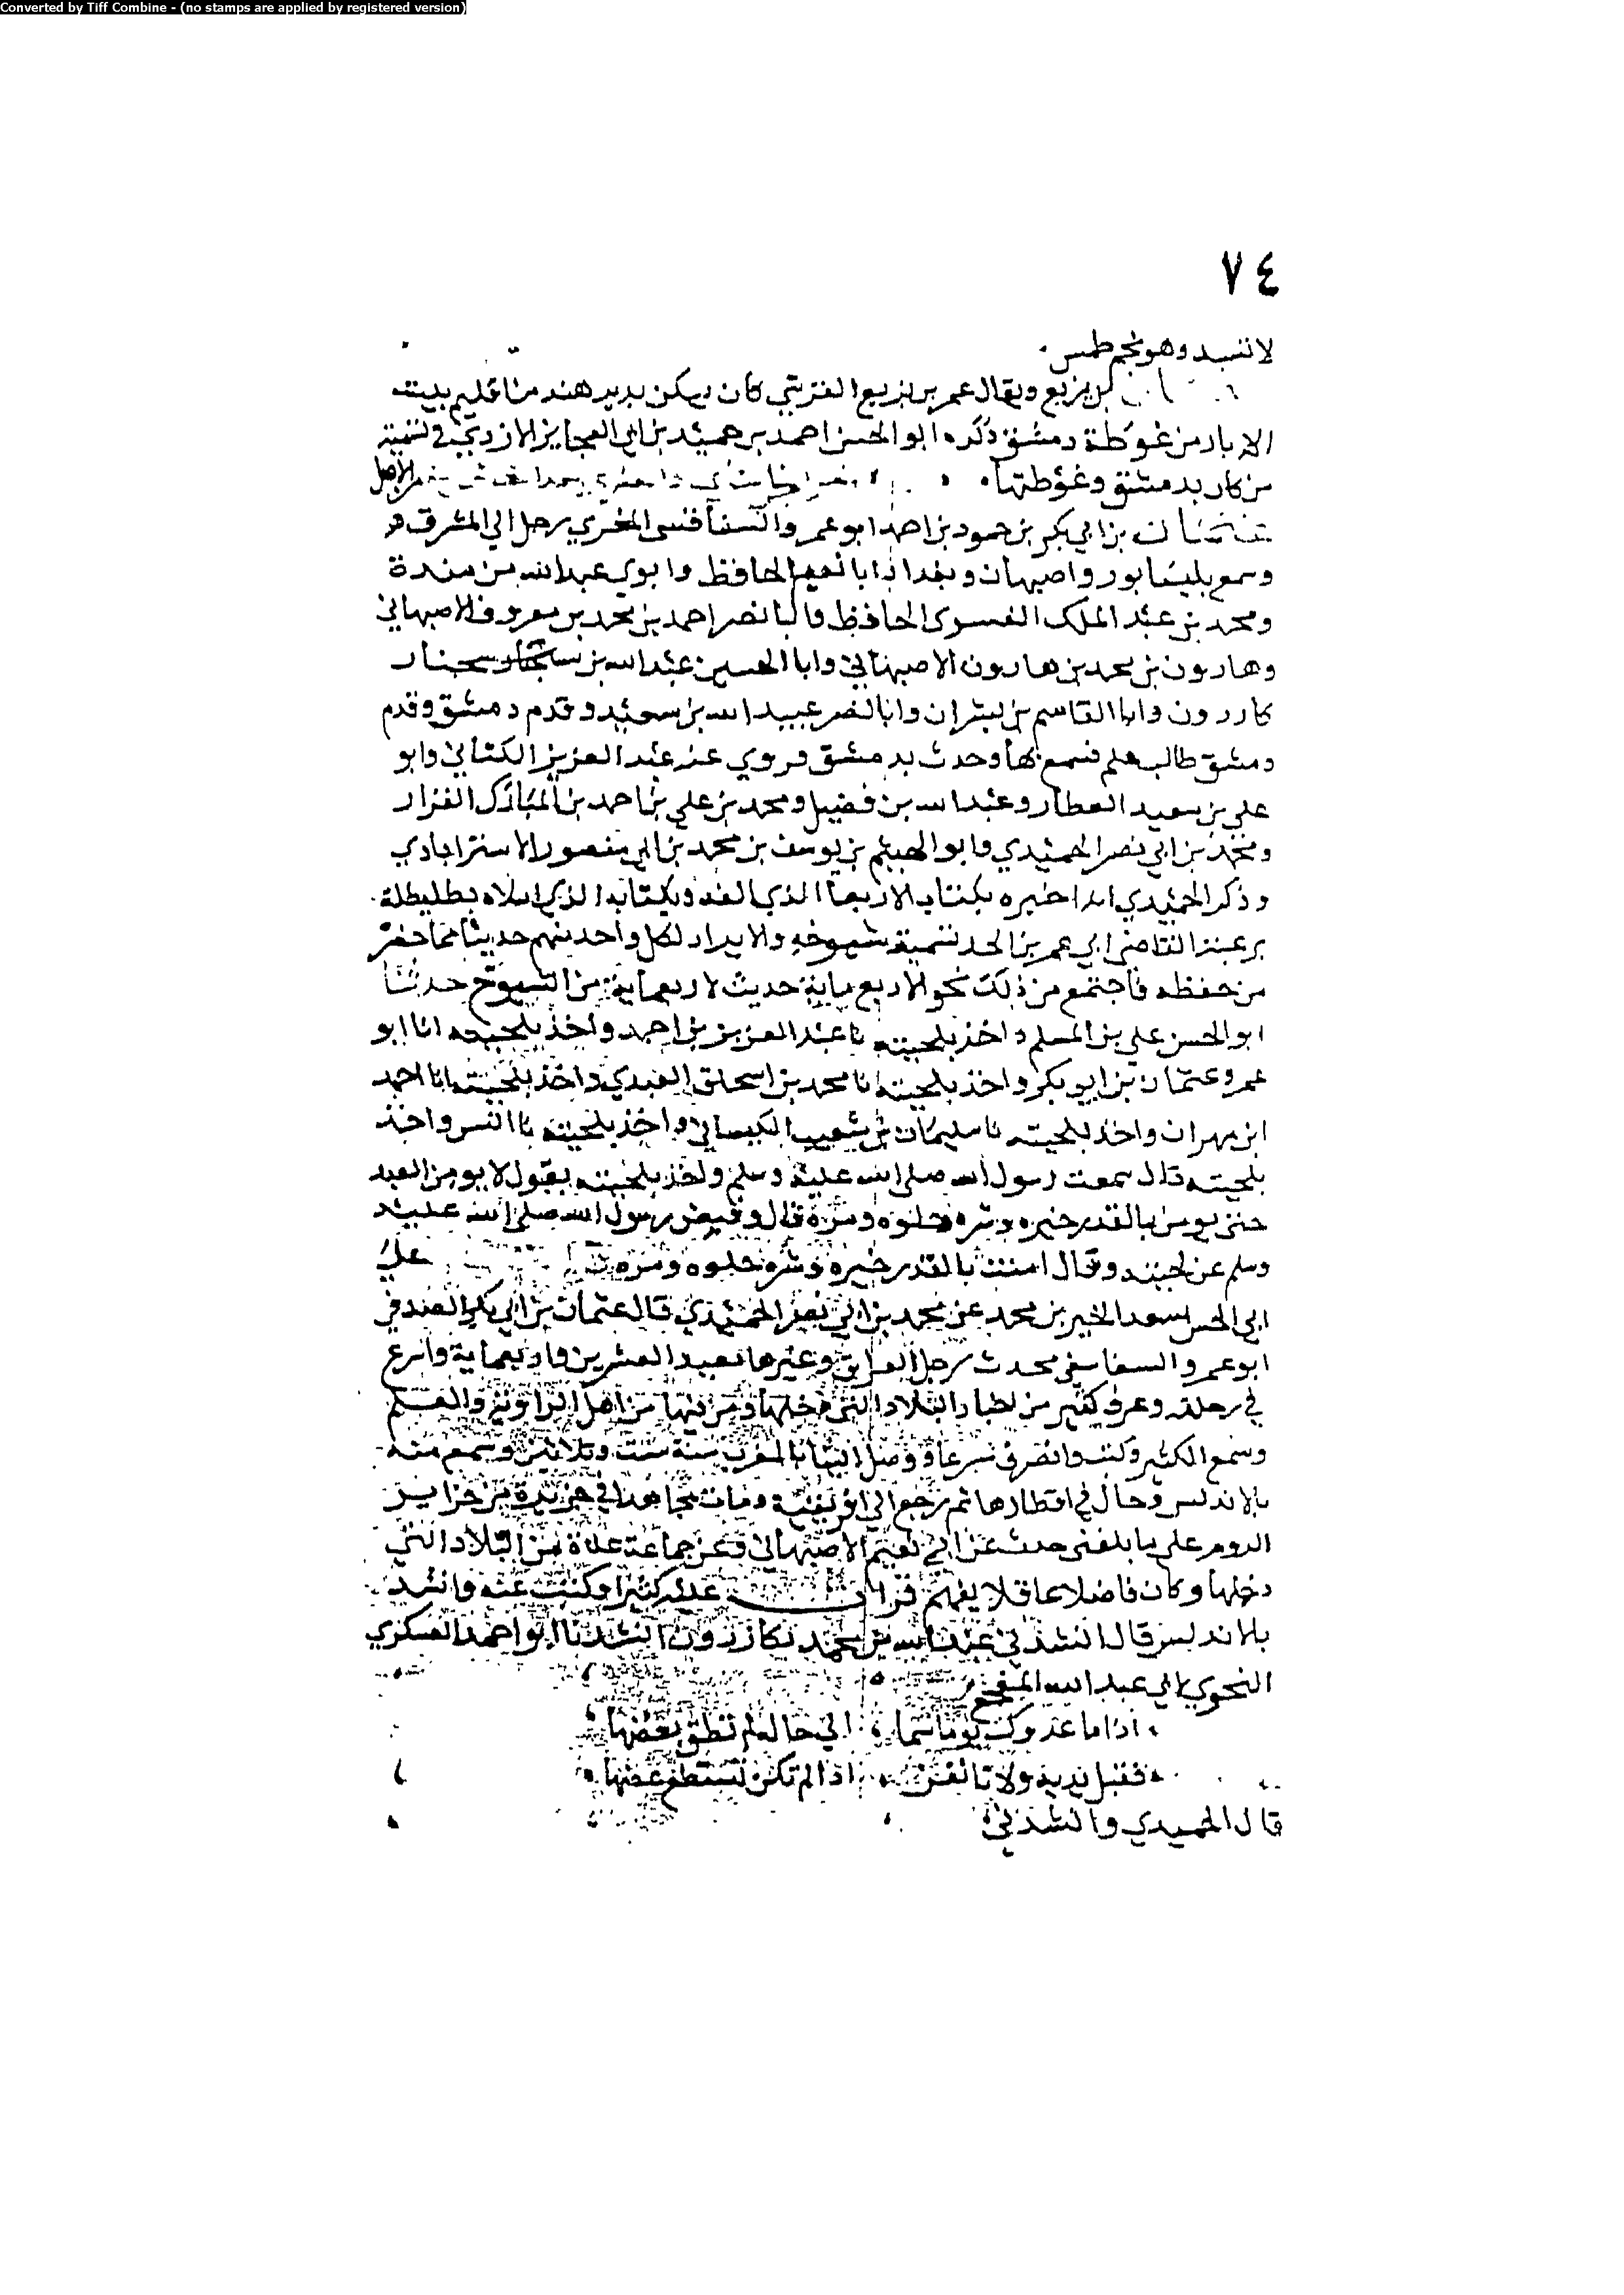 Converted by Tiff Combine - (no stamps are applied by registered version)
٧٤
لا تفسد وهو نجم طمس
بن يزيع ويقال عمر بن يزيع القرشي كان يسكن بدير هند من اقليم بيت
الابار من غوطة دمشق ذكره ابو الحسن احمد بن حميد بن ابي العجايز الازدي في تسمية
من كان بدمشق وغوطتها من الاصل
عثمان بن ابي بكر بن حمود بن احمد ابو عمرو السفاقسي المغربي رحل الي المشرق
وسمع بنيسابور واصبهان وبغداد ابا نعيم الحافظ وابوي عبد الله بن مندة
ومحمد بن عبد الملك الفسوي الحافظ وابا نصر احمد بن محمد بن معروف الاصبهاني
وهارون بن محمد بن هارون الاصبهاني وابا الحسين عبد الله بن
كازرون وابا القاسم بن بشران وابا نصر عبيد الله بن سعيد وقدم دمشق وقدم
دمشق طالب علم فسمع بها وحدث بدمشق فروي عنه عبد العزيز الكتاني وابو
علي بن سعيد العطار وعبد الله بن فضيل ومحمد بن علي بن احمد بن المبارك الفزار
ومحمد بن ابي نصر الحميدي وابو الهيثم بن يوسف بن محمد بن ابي منصور الاسترابادي
وذكر الحميدي انه اخبره بكتاب الاربعا الذي الفه وبكتابه الذي املاه بطليطلة
برغبة القاضي ابي عمر بن الحد تسمية شيوخه والايراد لكل واحد منهم حديثا مما حضر
من حفظه فاجتمع من ذلك نحو الاربع ماية حديث لاربعماية من الشيوخ حدثنا
ابو الحسن علي بن المسلم واخذ بلحيته نا عبد العزيز بن احمد واخذ بلحيته انا ابو
عمرو عثمان بن ابو بكر واخذ بلحيته انا محمد بن اسحاق العبدي واخذ بلحيته انا احمد
ابن مهران واخذ بلحيته نا سليمان بن شعيب الكيساني واخذ بلحيته نا انس واخذ
بلحيته قال سمعت رسول الله صلى الله عليه وسلم واخذ بلحيته يقول لا يومن العبد
حتى يومن بالقدر خيره وشره وحلوه ومره قال وقبض رسول الله صلى الله عليه
وسلم عن لحيته وقال امنت بالقدر خيره وشره حلوه ومره علي
ابي الحسن سعد الخير بن محمد عن محمد بن ابي نصر الحميدي قال عثمان بن ابي بكر الصدفي
ابو عمرو السفاسقي محدث رحل العراق وغيرها بعيد العشرين واربعماية واسرع
في رحلته وعرف كثير من اخبار البلاد التي دخلها ومن بها من اهل الرواية والعلم
وسمع الكثير وكتب وانصرف مسرعا ووصل الينا بالمغرب سنة ست وثلاثين وسمع منه
بالاندلس وجال في اقطارها ثم رجع الي افريقية ومات مجاهدا في جزيرة من جزاير
الروم على ما بلغني حدث عن ابي نعيم الاصبهاني وعن جماعة عدة من البلاد التي
دخلها وكان فاضلا عاقلا يفهم قرات عليه كثيرا وكتبت عنه وانشد
بالاندلس قال انشدني عبد الله بن محمد بكازرون انشدنا ابو احمد العسكري
النحوي لابي عبد الله المفجع
اذا ما عدوك يوما سما الي حالة لم تطق بعضها
فقبل يديه ولا تانفن اذا لم تكن تستطع عضها
قال الحميدي وانشدني